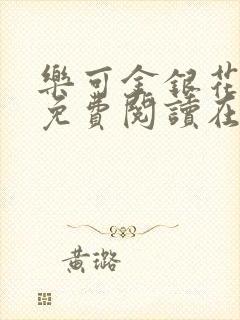 樂可金銀花
免費閱讀在
黃璐